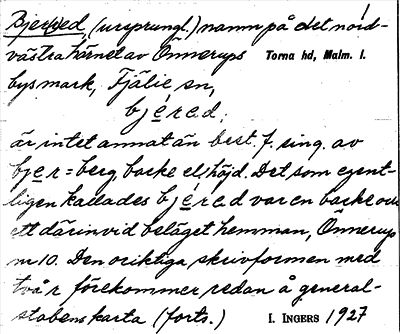 Bjerred, (ursprungl.) namn på det nord-
västra hörnet av Önnerups Torna hd, Malm. l.
bys mark, Fjälie sn,
bjered;
är intet annat än best. f. sing. av
bjer = berg, backe el. höjd. Det som egent-
ligen kallades bjered var en backe och
ett därinvid beläget hemman, Önnerup
nr 10. Den oriktiga skrivformen med
två r förekommer redan å general-
stabens karta (forts.) I. INGERS 1927